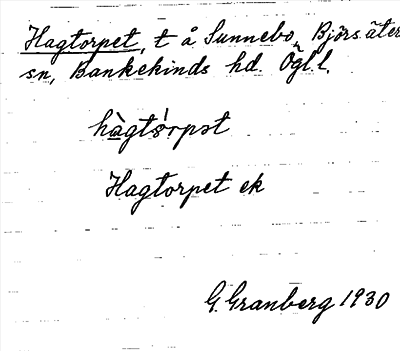 Hagtorpet, t å Sunnebo, Björsäter
sn, Bankekinds hd. Ögl.
hàgtsrpst
Hagtorpet ek
G. Granberg 1930